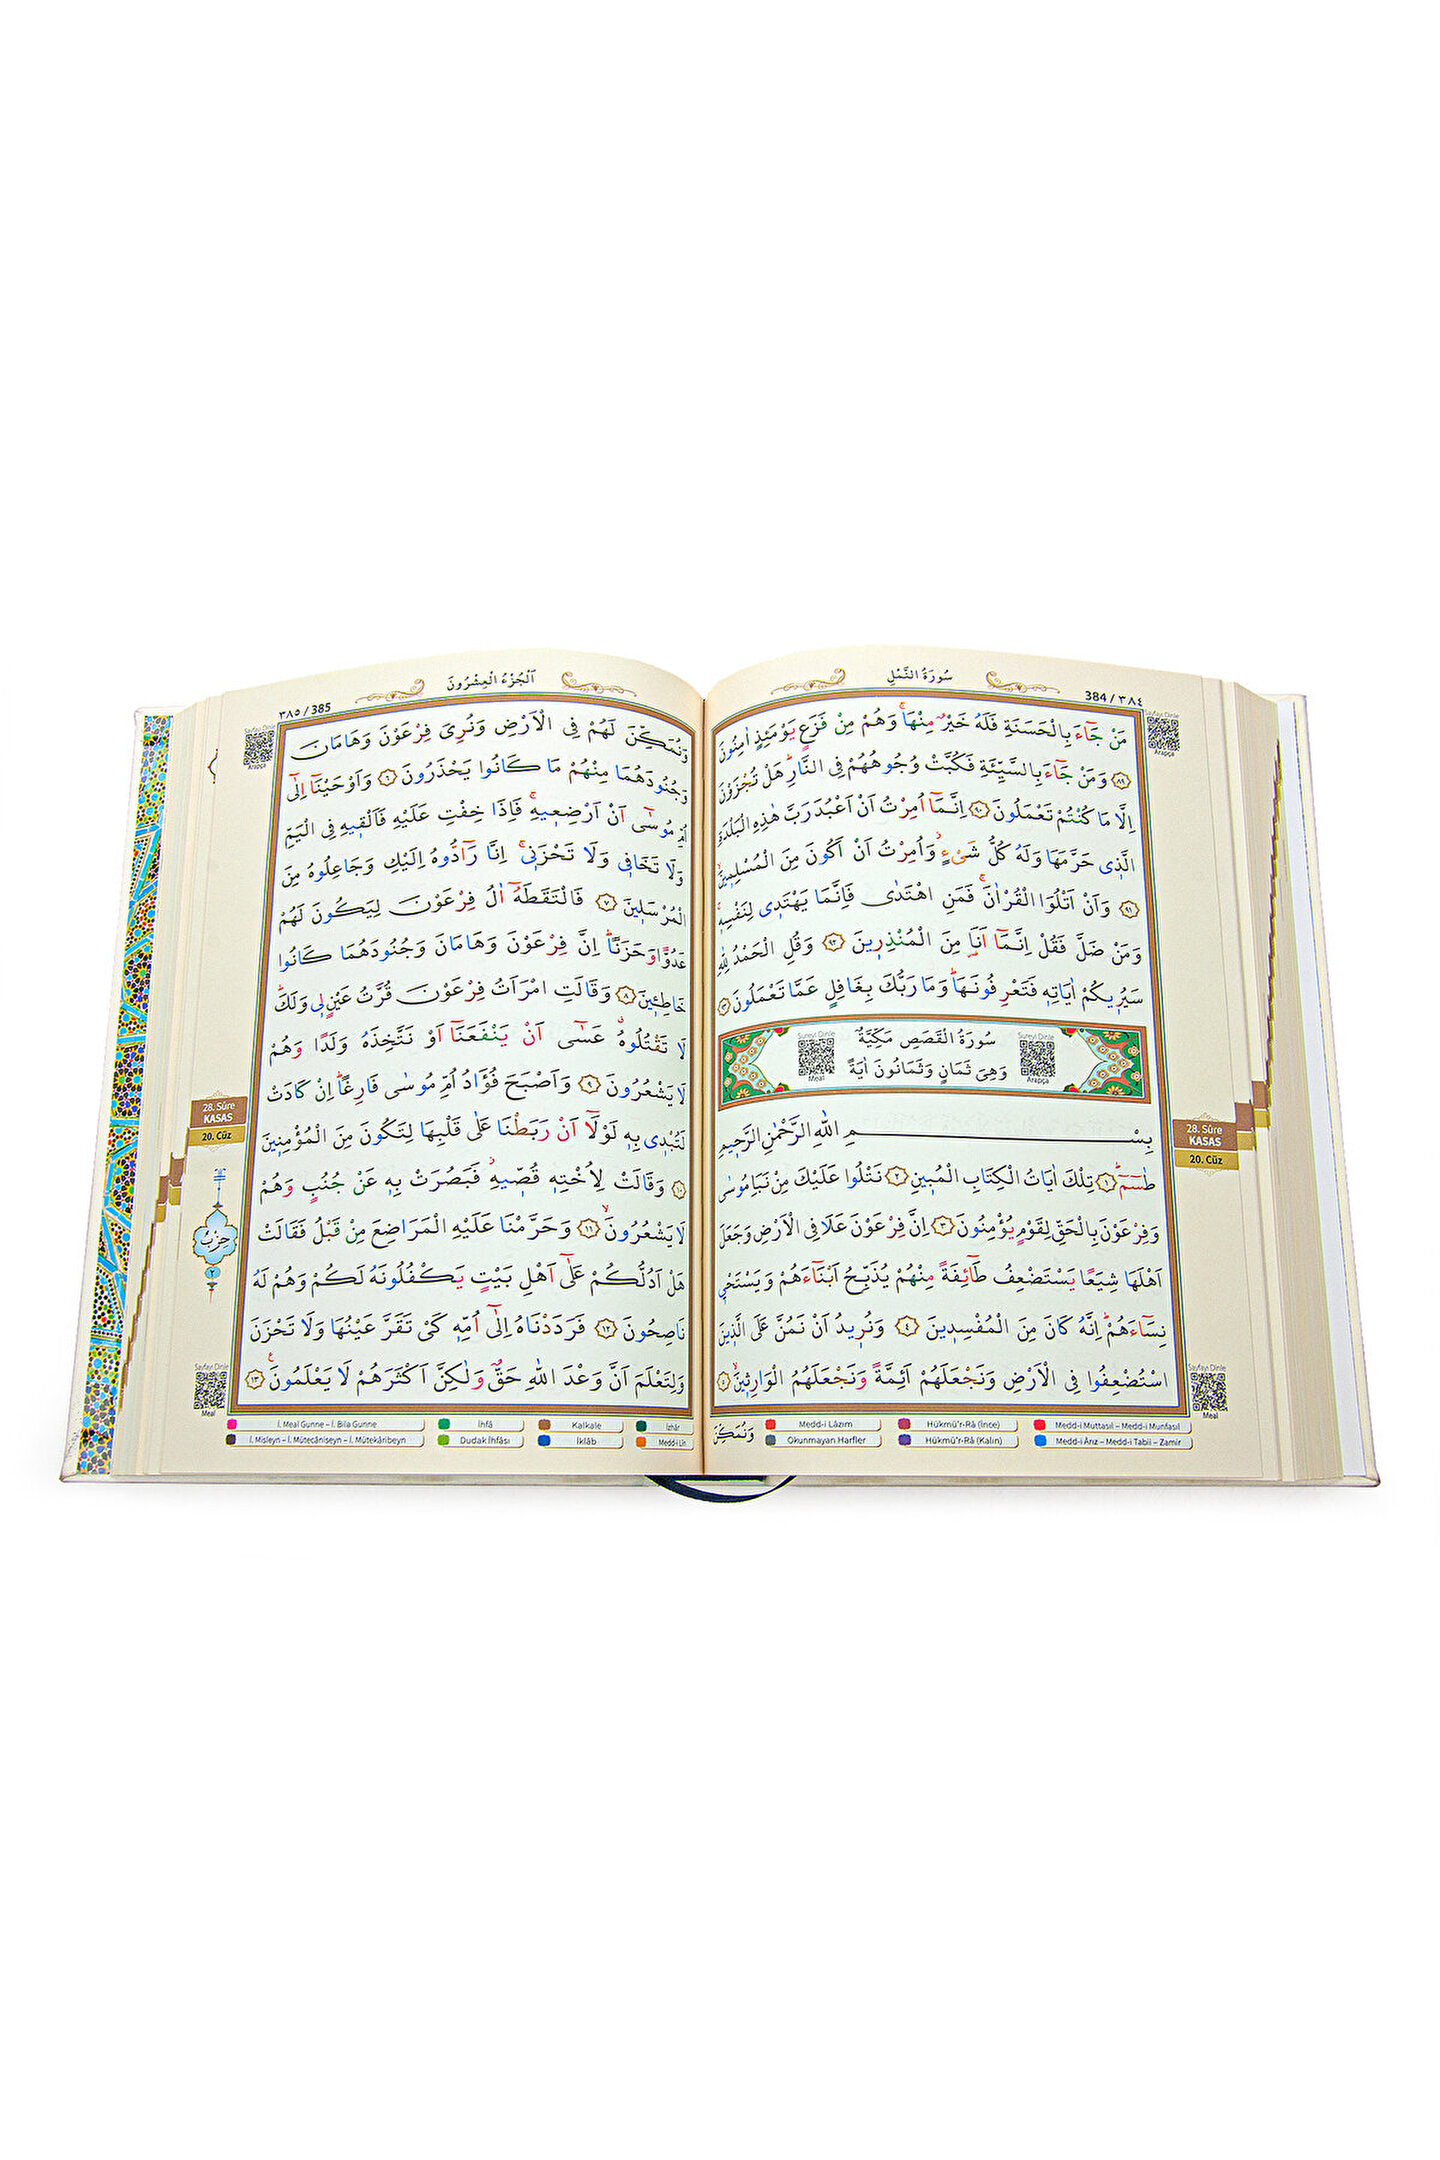 سُورَةُ النَّمْلِ
384 / ٣٨٤
Sayfayı Dinle
Arapça
مَنْ جَٓاءَ بِالْحَسَنَةِ فَلَهُ خَيْرٌ مِنْهَاۚ وَهُمْ مِنْ فَزَعٍ يَوْمَئِذٍ اٰمِنُونَ
﴿٨٩﴾ وَمَنْ جَٓاءَ بِالسَّيِّئَةِ فَكُبَّتْ وُجُوهُهُمْ فِي النَّارِۜ هَلْ تُجْزَوْنَ
اِلَّا مَا كُنْتُمْ تَعْمَلُونَ ﴿٩٠﴾ اِنَّمَٓا اُمِرْتُ اَنْ اَعْبُدَ رَبَّ هٰذِهِ الْبَلْدَةِ
الَّذ۪ي حَرَّمَهَا وَلَهُ كُلُّ شَيْءٍۘ وَاُمِرْتُ اَنْ اَكُونَ مِنَ الْمُسْلِم۪ينَۙ
﴿٩١﴾ وَاَنْ اَتْلُوَا الْقُرْاٰنَۚ فَمَنِ اهْتَدٰى فَاِنَّمَا يَهْتَد۪ي لِنَفْسِه۪ۚ
وَمَنْ ضَلَّ فَقُلْ اِنَّمَٓا اَنَا۬ مِنَ الْمُنْذِر۪ينَ ﴿٩٢﴾ وَقُلِ الْحَمْدُ لِلّٰهِ
سَيُر۪يكُمْ اٰيَاتِه۪ فَتَعْرِفُونَهَاۜ وَمَا رَبُّكَ بِغَافِلٍ عَمَّا تَعْمَلُونَ ﴿٩٣﴾
سُورَةُ الْقَصَصِ مَكِّيَّةٌ
وَهِيَ ثَمَانٍ وَثَمَانُونَ اٰيَةً
Sureyi Dinle
Meal
Sureyi Dinle
Arapça
بِسْمِ اللّٰهِ الرَّحْمٰنِ الرَّح۪يمِ
طٰسٓمٓۜ ﴿١﴾ تِلْكَ اٰيَاتُ الْكِتَابِ الْمُب۪ينِ ﴿٢﴾ نَتْلُوا عَلَيْكَ مِنْ نَبَاِ مُوسٰى
وَفِرْعَوْنَ بِالْحَقِّ لِقَوْمٍ يُؤْمِنُونَ ﴿٣﴾ اِنَّ فِرْعَوْنَ عَلَا فِي الْاَرْضِ وَجَعَلَ
اَهْلَهَا شِيَعًا يَسْتَضْعِفُ طَٓائِفَةً مِنْهُمْ يُذَبِّحُ اَبْنَٓاءَهُمْ وَيَسْتَحْي۪
نِسَٓاءَهُمْۜ اِنَّهُ كَانَ مِنَ الْمُفْسِد۪ينَ ﴿٤﴾ وَنُر۪يدُ اَنْ نَمُنَّ عَلَى الَّذ۪ينَ
اسْتُضْعِفُوا فِي الْاَرْضِ وَنَجْعَلَهُمْ اَئِمَّةً وَنَجْعَلَهُمُ الْوَارِث۪ينَۙ ﴿٥﴾
28. Sûre
KASAS
20. Cüz
Sayfayı Dinle
Meal
وَنُمَكِّنَ
Medd-i Lâzım
Hükmü'r-Râ (İnce)
Medd-i Muttasıl – Medd-i Munfasıl
Okunmayan Harfler
Hükmü'r-Râ (Kalın)
Medd-i Ârız – Medd-i Tabii – Zamir
اَلْجُزْءُ الْعِشْرُونَ
٣٨٥ / 385
Sayfayı Dinle
Arapça
وَنُمَكِّنَ لَهُمْ فِي الْاَرْضِ وَنُرِيَ فِرْعَوْنَ وَهَامَانَ
وَجُنُودَهُمَا مِنْهُمْ مَا كَانُوا يَحْذَرُونَ ﴿٦﴾ وَاَوْحَيْنَٓا اِلٰٓى
اُمِّ مُوسٰٓى اَنْ اَرْضِع۪يهِۚ فَاِذَا خِفْتِ عَلَيْهِ فَاَلْق۪يهِ فِي الْيَمِّ
وَلَا تَخَاف۪ي وَلَا تَحْزَن۪يۚ اِنَّا رَٓادُّوهُ اِلَيْكِ وَجَاعِلُوهُ مِنَ
الْمُرْسَل۪ينَ ﴿٧﴾ فَالْتَقَطَهُٓ اٰلُ فِرْعَوْنَ لِيَكُونَ لَهُمْ
عَدُوًّا وَحَزَنًاۜ اِنَّ فِرْعَوْنَ وَهَامَانَ وَجُنُودَهُمَا كَانُوا
خَاطِـ۪ٔينَ ﴿٨﴾ وَقَالَتِ امْرَاَتُ فِرْعَوْنَ قُرَّتُ عَيْنٍ ل۪ي وَلَكَۜ
لَا تَقْتُلُوهُۗ عَسٰٓى اَنْ يَنْفَعَنَٓا اَوْ نَتَّخِذَهُ وَلَدًا وَهُمْ
لَا يَشْعُرُونَ ﴿٩﴾ وَاَصْبَحَ فُؤٰادُ اُمِّ مُوسٰى فَارِغًاۜ اِنْ كَادَتْ
لَتُبْد۪ي بِه۪ لَوْلَٓا اَنْ رَبَطْنَا عَلٰى قَلْبِهَا لِتَكُونَ مِنَ الْمُؤْمِن۪ينَ
﴿١٠﴾ وَقَالَتْ لِاُخْتِه۪ قُصّ۪يهِۘ فَبَصُرَتْ بِه۪ عَنْ جُنُبٍ وَهُمْ
لَا يَشْعُرُونَۙ ﴿١١﴾ وَحَرَّمْنَا عَلَيْهِ الْمَرَاضِعَ مِنْ قَبْلُ فَقَالَتْ
هَلْ اَدُلُّكُمْ عَلٰٓى اَهْلِ بَيْتٍ يَكْفُلُونَهُ لَكُمْ وَهُمْ لَهُ
نَاصِحُونَ ﴿١٢﴾ فَرَدَدْنَاهُ اِلٰٓى اُمِّه۪ كَيْ تَقَرَّ عَيْنُهَا وَلَا تَحْزَنَ
وَلِتَعْلَمَ اَنَّ وَعْدَ اللّٰهِ حَقٌّ وَلٰكِنَّ اَكْثَرَهُمْ لَا يَعْلَمُونَ۟ ﴿١٣﴾
28. Sûre
KASAS
20. Cüz
حِزْبُ
٢
Sayfayı Dinle
Meal
İ. Meal Gunne – İ. Bila Gunne
İhfâ
Kalkale
İzhâr
İ. Misleyn – İ. Mütecâniseyn – İ. Mütekâribeyn
Dudak İhfâsı
İklâb
Medd-i Lîn